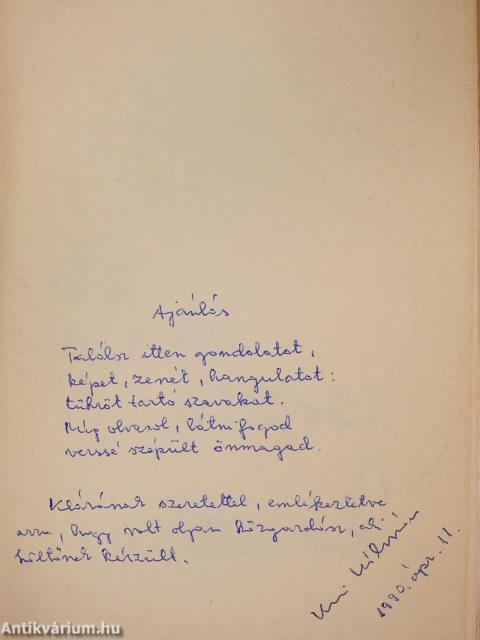 Ajánlás
Találsz itten gondolatot,
képet, zenét, hangulatot:
tükröt tartó szavakat.
Míg olvasol, látni fogod
verssé szépült önmagad.
Klárának szeretettel, emlékeztetve
arra, hogy volt olyan közgazdász, aki
költőnek készült.
Kálmán
1990. ápr. 11.
Antikvárium.hu